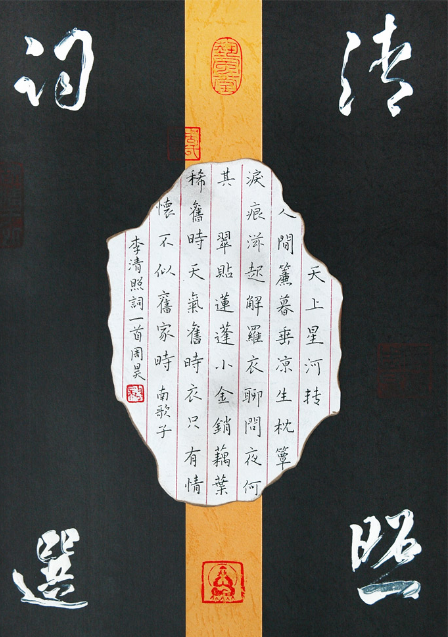 清照
词選
天上星河转
人間簾暮垂凉生枕簟
淚痕滋起解羅衣聊問夜何
其翠貼蓮蓬小金銷藕葉
稀舊時天氣舊時衣只有情
懷不似舊家時南歌子
李清照詞一首周昊